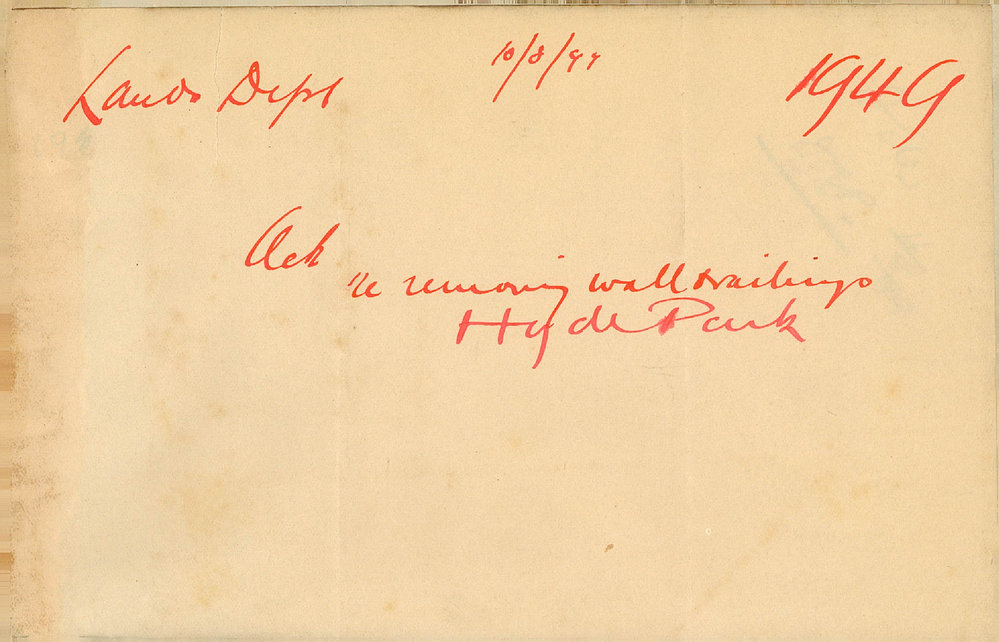 Lands Dept 10/8/97 1949
Ack
re removing wall & railings
Hyde Park